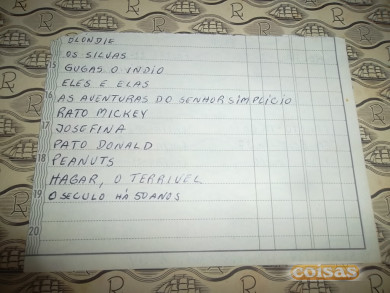 BLONDIE
OS SILVAS
15
GUGAS O INDIO
ELES E ELAS
16
AS AVENTURAS DO SENHOR SIMPLICIO
RATO MICKEY
17
JOSEFINA
PATO DONALD
18
PEANUTS
HAGAR, O TERRIVEL
19
O SECULO HÁ 50 ANOS
20
coisas